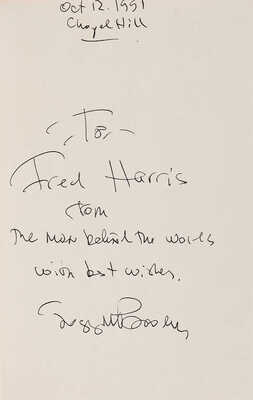 Oct 12. 1991
Chapel Hill
To,
Fred Harris
from
The man behind the works
with best wishes.